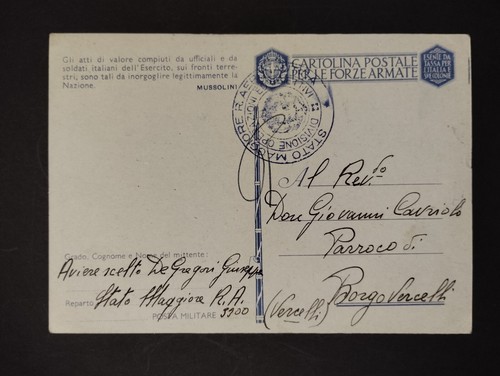 Gli atti di valore compiuti da ufficiali e da
soldati italiani dell'Esercito, sui fronti terre-
stri, sono tali da inorgoglire legittimamente la
Nazione.
MUSSOLINI
CARTOLINA POSTALE
PER LE FORZE ARMATE
ESENTE DA
TASSA PER
L'ITALIA E
SUE COLONIE
STATO MAGGIORE R. AERONAUTICA
DIVISIONE
Al Rev.do
Don Giovanni Cavriolo
Parroco di
Borgo Vercelli
(Vercelli)
Grado, Cognome e Nome del mittente:
Aviere scelto De Gregori Giuseppe
Reparto Stato Maggiore R.A.
POSTA MILITARE 3300